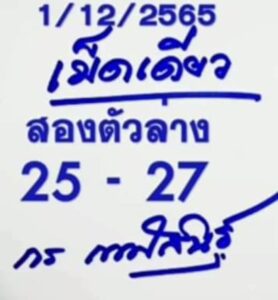 1/12/2565
เม็ดเดียว
สองตัวล่าง
25 - 27
กร กาฬสินธุ์